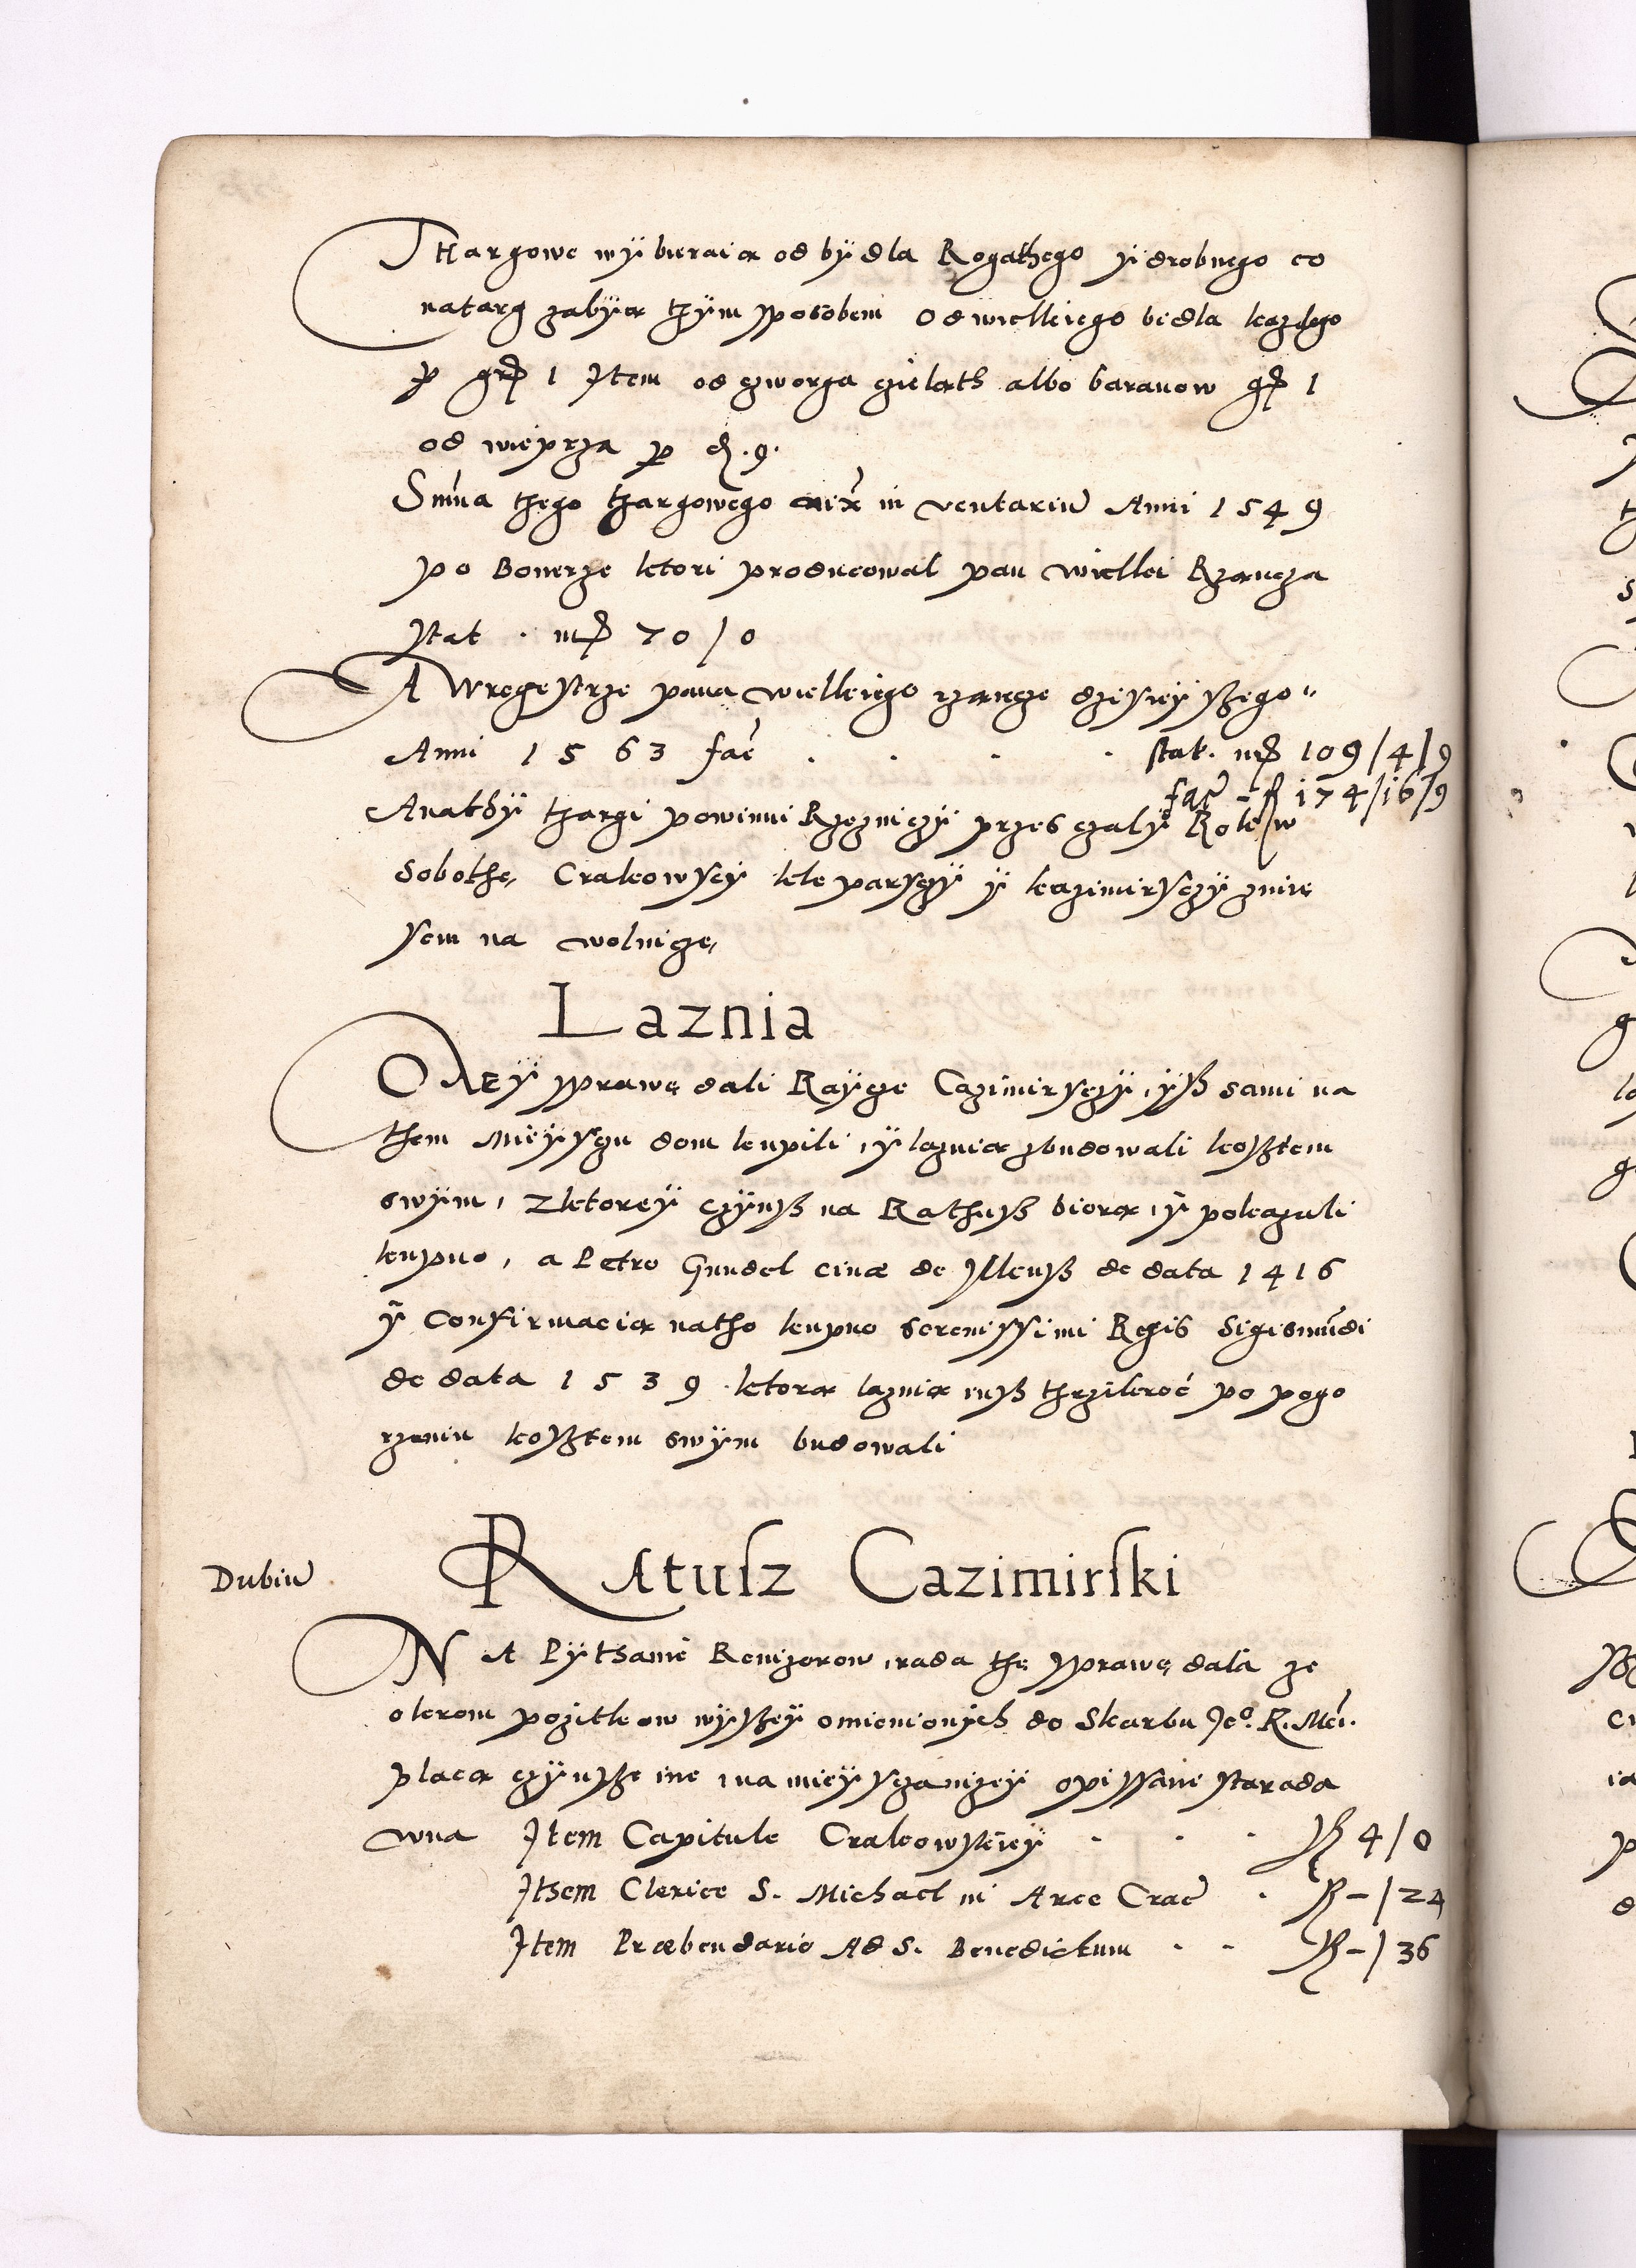 THargowe wÿbieraią od bÿdla Rogathego ÿ drobnego co
natarg zabÿią thÿm sposobem Od wielkiego bidla kazdego
p gr 1 Item od czworga cieląth albo baranow gr 1
od wieprza p d. 9.
Sum̃a thego thargowego in ventariũ Anni 1549
po Bonerze ktori producowal pan wielki Rzancza
stat · mr̃ 70/0
A W regestrze pana wielkiego rzancze dzisieÿszego
Anni 1563 fac̃ . . . . stat. mr̃ 109/4/9
fac̃ - fl 174/16/9
Anathÿ thargi powinni Rzeznicÿ przes czalÿ Rok w
Sobothę, Cracowsÿ kleparsczÿ ÿ kazimirsczÿ zmię
sem na wolnicze,
Laznia
O KTEY sprawę dali Rayce Cazimirsczÿ, ÿß sami na
them mieÿsczu dom kupili, ÿ laznią zbudowali kosztem
swÿm, Zktoreÿ czÿnß na Rathuß biorą, ÿ pokazali
kupno, a Petro Gundel ciuæ de Ilkuß de data 1416
ÿ Confirmacią natho kupno Serenissimi Regis Sigismũdi
de data 1539 ktorą laznią iuß thrzikroć po pogo
rzeniu kosztem swÿm budowali
Dubiũ
RAtusz Cazimirski
NA Pÿthanie Rewizorow, rada thę sprawę dala ze
okrom pozitkow wÿszeÿ omienionÿch do Skarbu Je⁰. K. Mci.
placą czÿnsze ine, na mieÿscza nizeÿ opissane starada
wna Item Capitule Cracowskieÿ . . . fl 4/0
Ithem Clerice S. Michael in Arce Crac̃ . fl -/24
Item Præbendario Ad S. Benedictum . . fl -/36